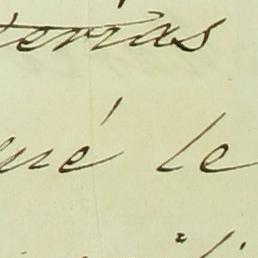 terias
qué le